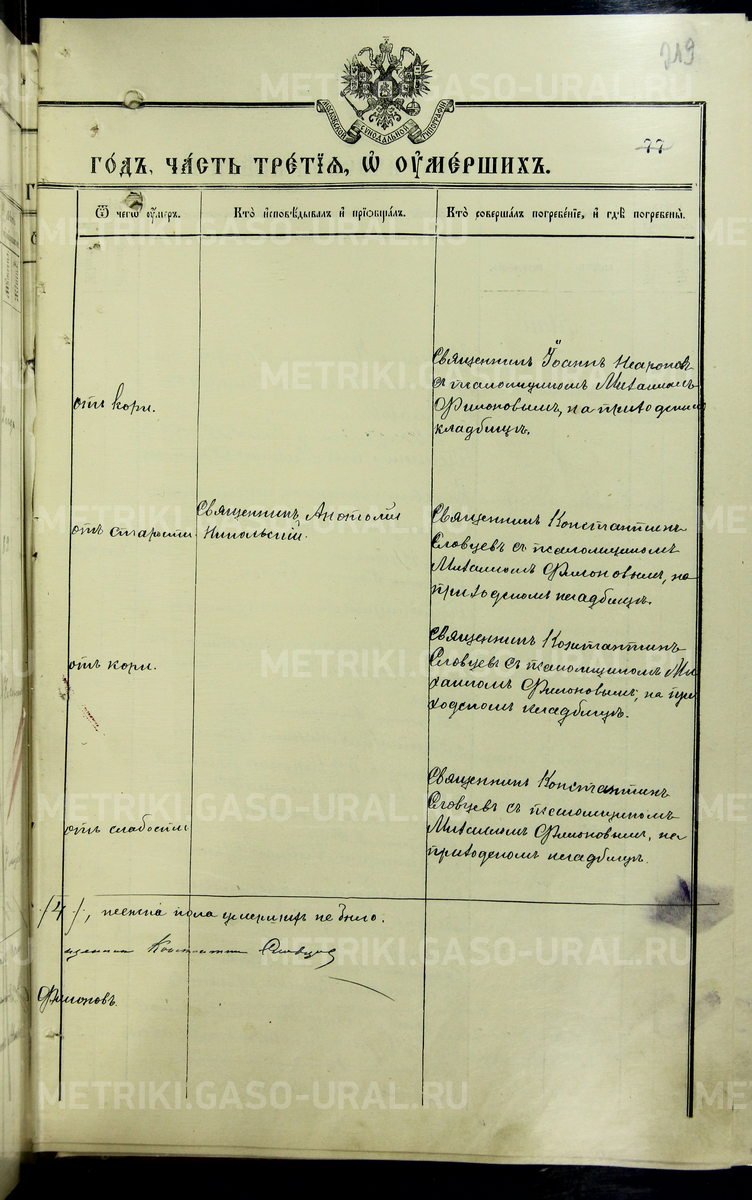 219
МОСКОВСКОЙ СѴНОДАЛЬНОЙ ТИПОГРАФІИ
77
ГО́ДЪ, ЧА́СТЬ ТРЕ́ТІЯ, Ѡ҆ ОУ҆МЕ́РШИХЪ.
Ѿ чегѡ̀ ᲂу҆́меръ.
Кто̀ и҆сповѣ́дывалъ и҆ прїѡбща́лъ.
Кто̀ соверша́лъ погребе́нїе, и҆ гдѣ̀ погребены̀.
отъ кори.
Священникъ Іоаннъ
съ псаломщикомъ Михаиломъ
Филоновымъ, на приходскомъ
кладбищѣ.
отъ старости
Священникъ Анатолій
Никольскій.
Священникъ Константинъ
Словцевъ съ псаломщикомъ
Михаиломъ Филоновымъ, на
приходскомъ кладбищѣ.
отъ кори.
Священникъ Константинъ
Словцевъ съ псаломщикомъ Ми-
хаиломъ Филоновымъ, на при-
ходскомъ кладбищѣ.
отъ слабости
Священникъ Константинъ
Словцевъ съ псаломщикомъ
Михаиломъ Филоновымъ, на
приходскомъ кладбищѣ.
/4/, женска пола умершихъ не было.
щенникъ Константинъ Словцевъ
Филоновъ.
METRIKI.GASO-URAL.RU